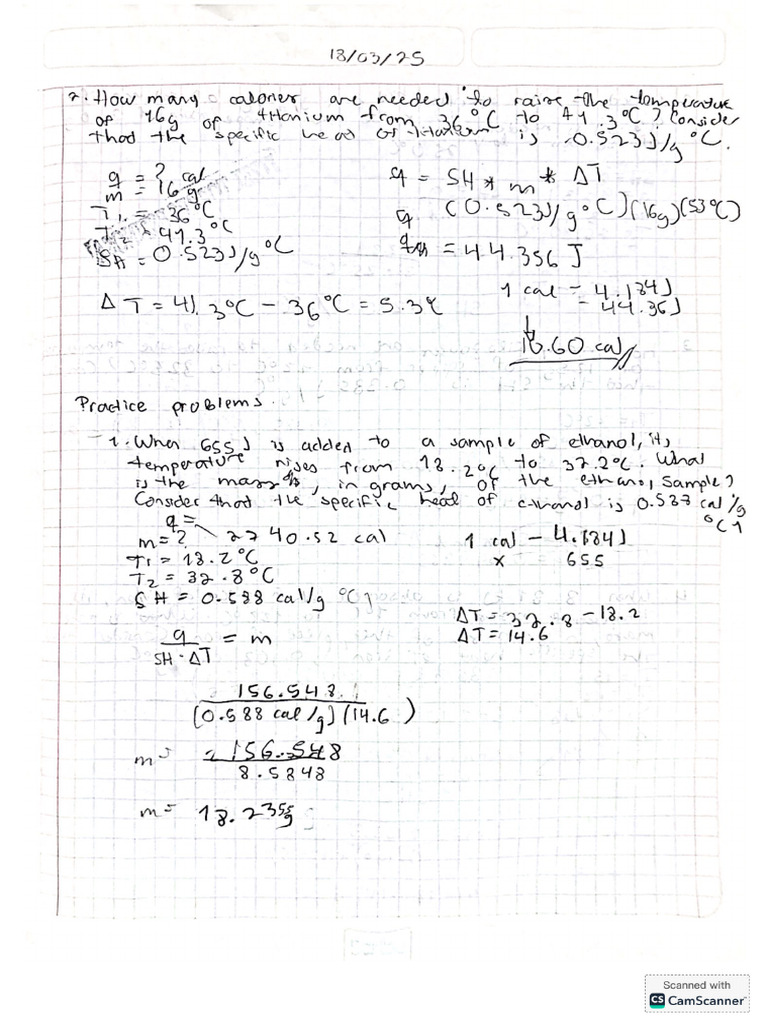 18/03/25
2. How many calories are needed to raise the temperature
of 16g of titanium from 36°C to 41.3°C? Consider
that the specific head of titanium is 0.523J/g°C.
q = ? cal
m = 16 g
T1 = 36°C
T2 = 41.3°C
SH = 0.523J/g°C
ΔT = 41.3°C - 36°C = 5.3°C
q = SH * m * ΔT
q (0.523J/g°C)(16g)(53°C)
q = 44.356 J
1 cal = 4.184J
- 44.36J
10.60 cal
Practice problems.
1. When 655 J is added to a sample of ethanol, its
temperature rises from 18.2°C to 32.2°C. What
is the mass, in grams, of the ethanol sample?
Consider that the specific head of ethanol is 0.587 cal/g
°C
q = 2740.52 cal
m = ?
T1 = 18.2°C
T2 = 32.8°C
SH = 0.588 cal/g °C
1 cal - 4.184J
x = 655
ΔT = 32.8 - 18.2
ΔT = 14.6
q = m
SH · ΔT
156.548
(0.588 cal/g)(14.6)
m = 156.548
8.5848
m = 18.235g
Scanned with
CS CamScanner